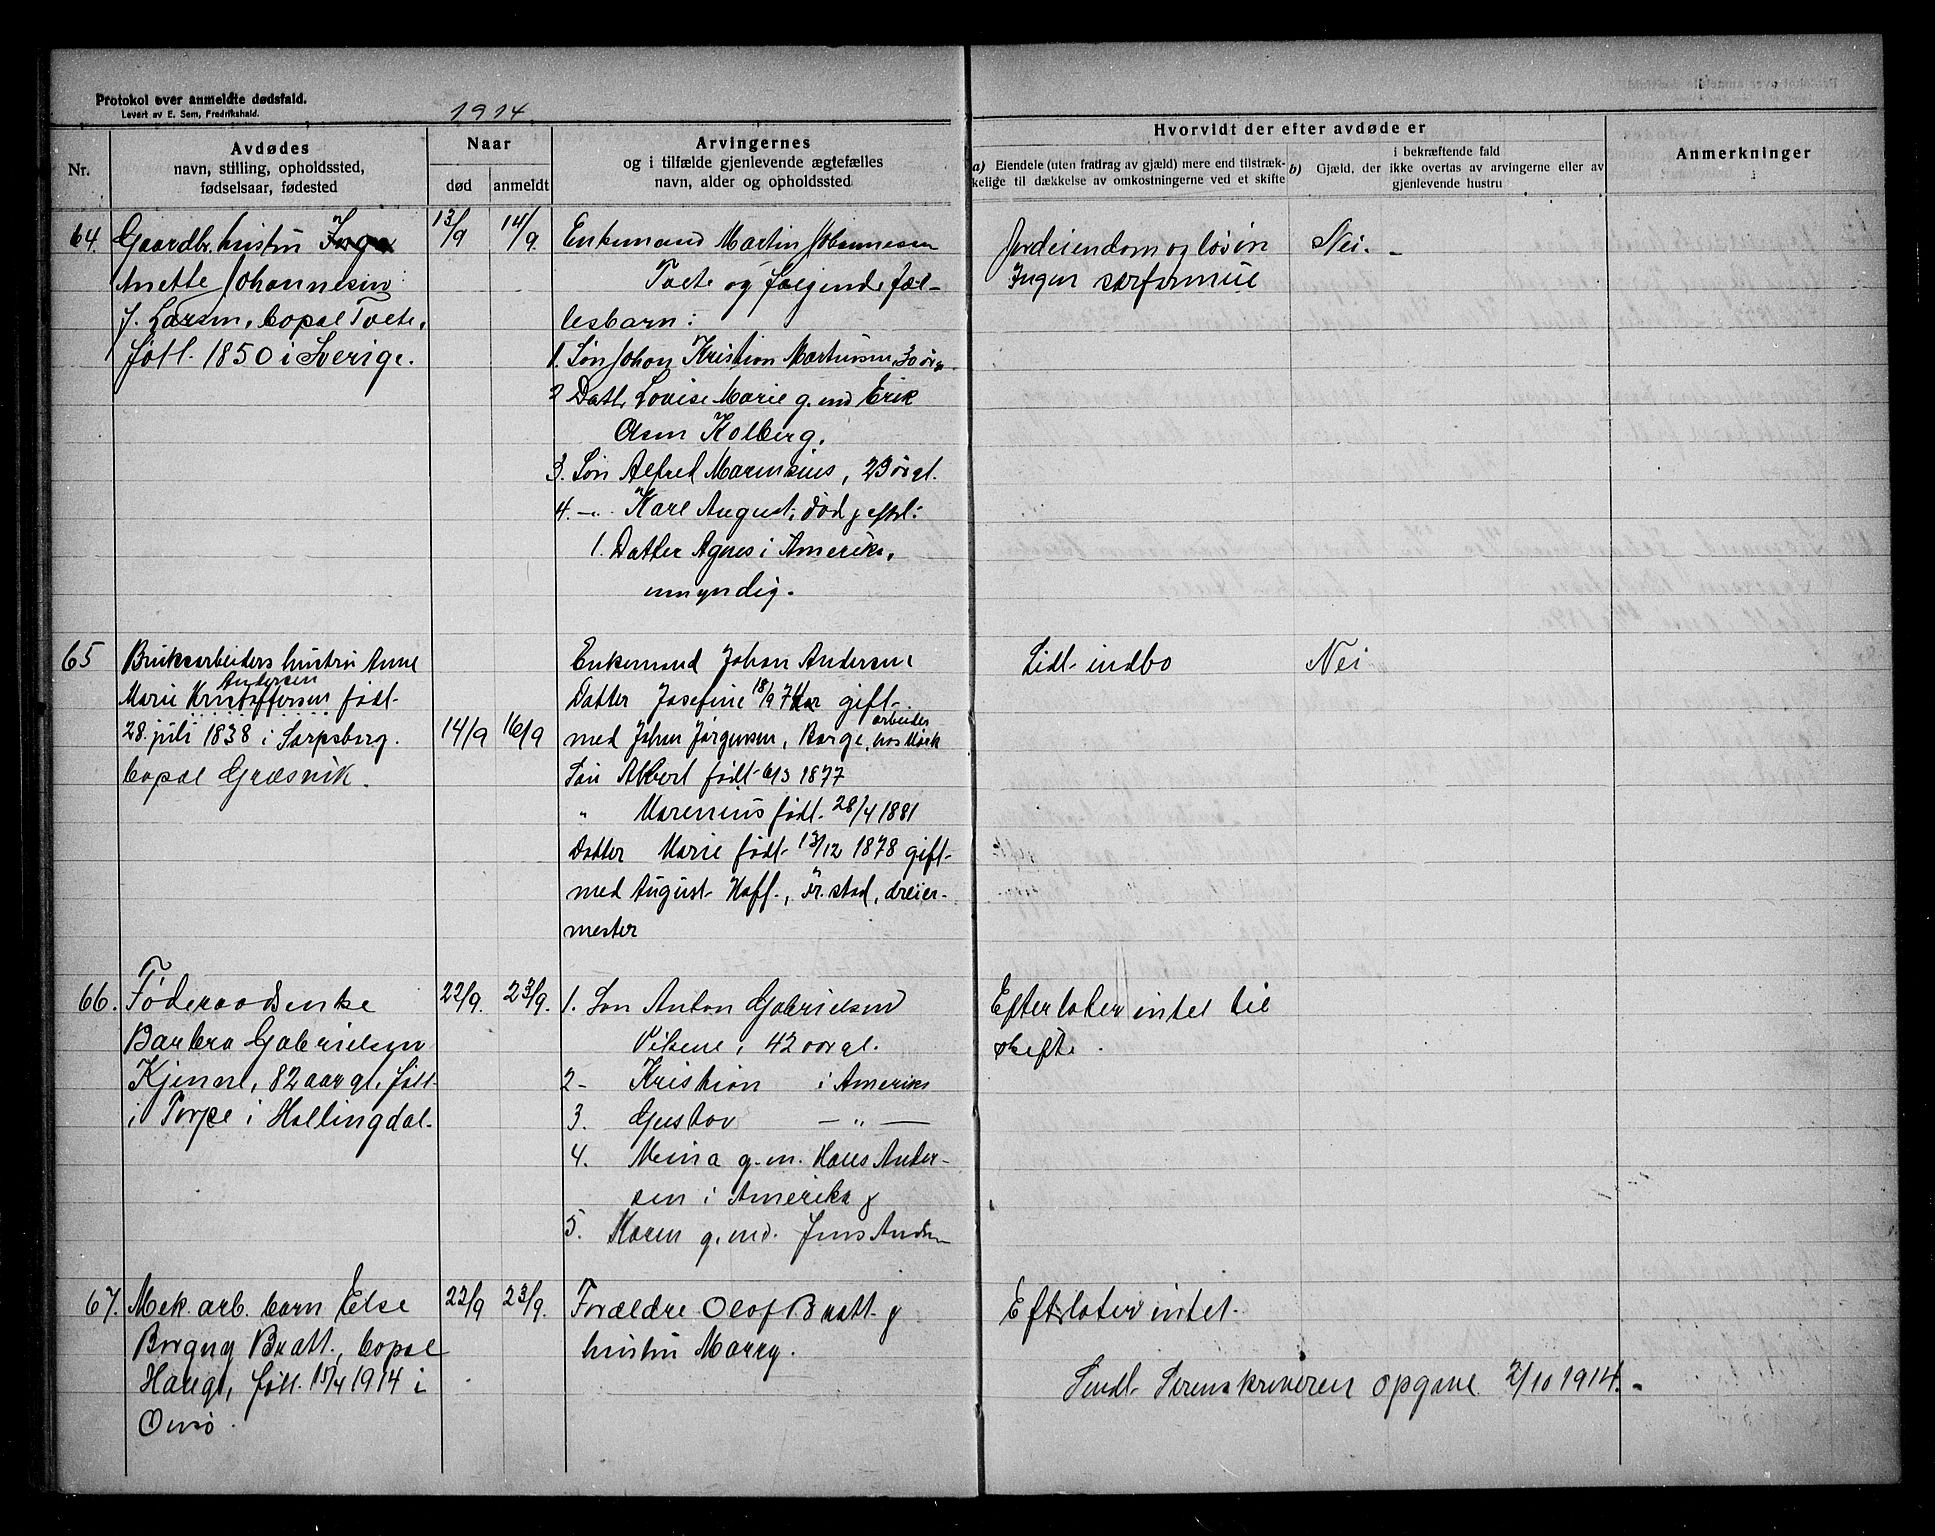 Protokol over anmeldte dødsfald.
Levert av E. Sem, Fredrikshald.
1914
Nr.
Avdødes
navn, stilling, opholdssted,
fødselsaar, fødested
Naar
død
anmeldt
Arvingernes
og i tilfælde gjenlevende ægtefælles
navn, alder og opholdssted
Hvorvidt der efter avdøde er
a) Eiendele (uten fradrag av gjæld) mere end tilstræk-
kelige til dækkelse av omkostningerne ved et skifte
b) Gjæld, der i bekræftende fald ikke overtas av arvingerne eller av gjenlevende hustru
Anmerkninger
64. Gaardbr. hustru Inga
Anette Johannesen
f. Larsen, bopæl Tofte,
født 1850 i Sverige.
13/9 14/9.
Enkemand Martin Johannesen
Tofte og følgende fæl-
lesbarn:
1. Søn Johan Kristian Martinsen, 30 år
2 Datt. Lovise Marie g. m Erik
Olsen Kolberg.
3. Søn Alfred Marensius, 23 år gl.
4. -"- Karl August, død, efterl:
1. Datter Agnes i Amerika,
umyndig.
Jordeiendom og løsøre
Ingen særformue
Nei. -
65 Bruksarbeiders hustru Anne
Andersen
Marie Kristoffersen født
28. juli 1838 i Sarpsborg.
bopæl Græsvik.
14/9 16/9
Enkemand Johan Andersen
Datter Josefine 18/9 74 gift
arbeider
med Johan Jørgensen, Borge, hos
Søn Albert født 6/3 1877
" Marenius født 28/4 1881
Datter Marie født 13/12 1878 gift
med August Hoff., Fr.stad, dreier-
mester
Lidt indbo
Nei
66. Føderaadsenke
Barbra Gabrielsen
Kjenne, 82 aar gl, født
i Torpe i Hallingdal.
22/9. 23/9.
1. Søn Anton Gabrielsen
Vikene, 42 aar gl.
2- Kristian i Amerika
3. Gustav — " —
4. Mina g. m. Hans Ander-
sen i Amerika &
5. Karen g. m. Jens Andersen
Efterlater intet til
skifte.
67. Mek. arb. barn Else
Borgny Bratt, bopæl
Hauge, født 15/4 1914 i
Onsø.
22/9 23/9.
Forældre Olof Bratt &
hustru Marry.
Efterlater intet.
Sendt Sorenskriveren opgave 2/10 1914. -